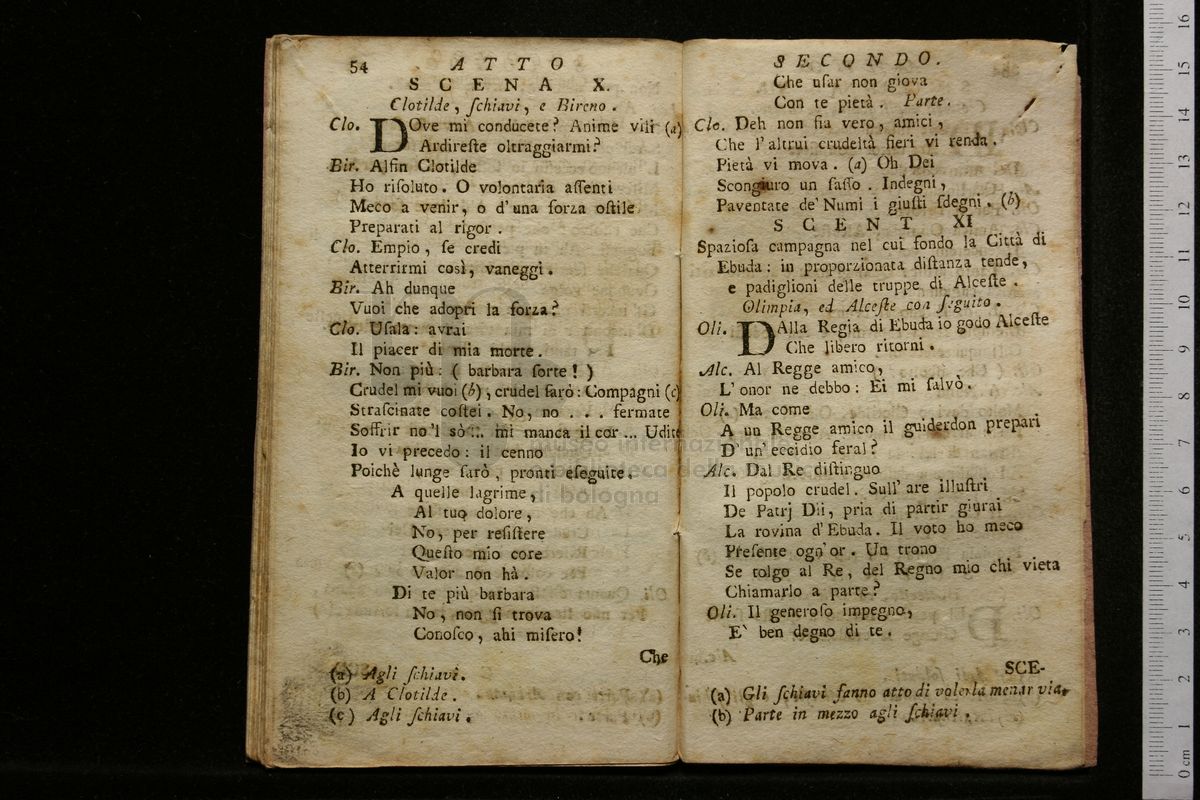 54 ATTO
SCENA X.
Clotilde, ſchiavi, e Bireno.
Clo. DOve mi conducete? Anime vili (a)
Ardireſte oltraggiarmi?
Bir. Alfin Clotilde
Ho riſoluto. O volontaria aſſenti
Meco a venir, o d'una forza oſtile
Preparati al rigor.
Clo. Empio, ſe credi
Atterrirmi così, vaneggi.
Bir. Ah dunque
Vuoi che adopri la forza?
Clo. Uſala: avrai
Il piacer di mia morte.
Bir. Non più: ( barbara ſorte! )
Crudel mi vuoi (b), crudel ſarò: Compagni (c)
Straſcinate coſtei. No, no . . . fermate
Soffrir no'l sò ... mi manca il cor ... Udite
Io vi precedo: il cenno
Poichè lunge ſarò, pronti eſeguite.
A quelle lagrime,
Al tuo dolore,
No, per reſiſtere
Queſto mio core
Valor non hà.
Di te più barbara
No, non ſi trova
Conoſco, ahi miſero!
Che
(a) Agli ſchiavi.
(b) A Clotilde.
(c) Agli ſchiavi.
SECONDO.
Che uſar non giova
Con te pietà. Parte.
Clo. Deh non ſia vero, amici,
Che l'altrui crudeltà fieri vi renda.
Pietà vi mova. (a) Oh Dei
Scongiuro un ſaſſo. Indegni,
Paventate de' Numi i giuſti ſdegni. (b)
SCENT XI
Spazioſa campagna nel cui fondo la Città di
Ebuda: in proporzionata diſtanza tende,
e padiglioni delle truppe di Alceſte.
Olimpia, ed Alceſte con ſeguito.
Oli. DAlla Regia di Ebuda io godo Alceſte
Che libero ritorni.
Alc. Al Regge amico,
L'onor ne debbo: Ei mi ſalvò.
Oli. Ma come
A un Regge amico il guiderdon prepari
D'un'eccidio feral?
Alc. Dal Re diſtinguo
Il popolo crudel. Sull'are illuſtri
De Patrj Dii, pria di partir giurai
La rovina d'Ebuda. Il voto ho meco
Preſente ogn'or. Un trono
Se tolgo al Re, del Regno mio chi vieta
Chiamarlo a parte?
Oli. Il generoſo impegno,
E` ben degno di te.
SCE-
(a) Gli ſchiavi fanno atto di volerla menar via.
(b) Parte in mezzo agli ſchiavi.
museo internazionale
e biblioteca della musica
di bologna
0 cm 1 2 3 4 5 6 7 8 9 10 11 12 13 14 15 16